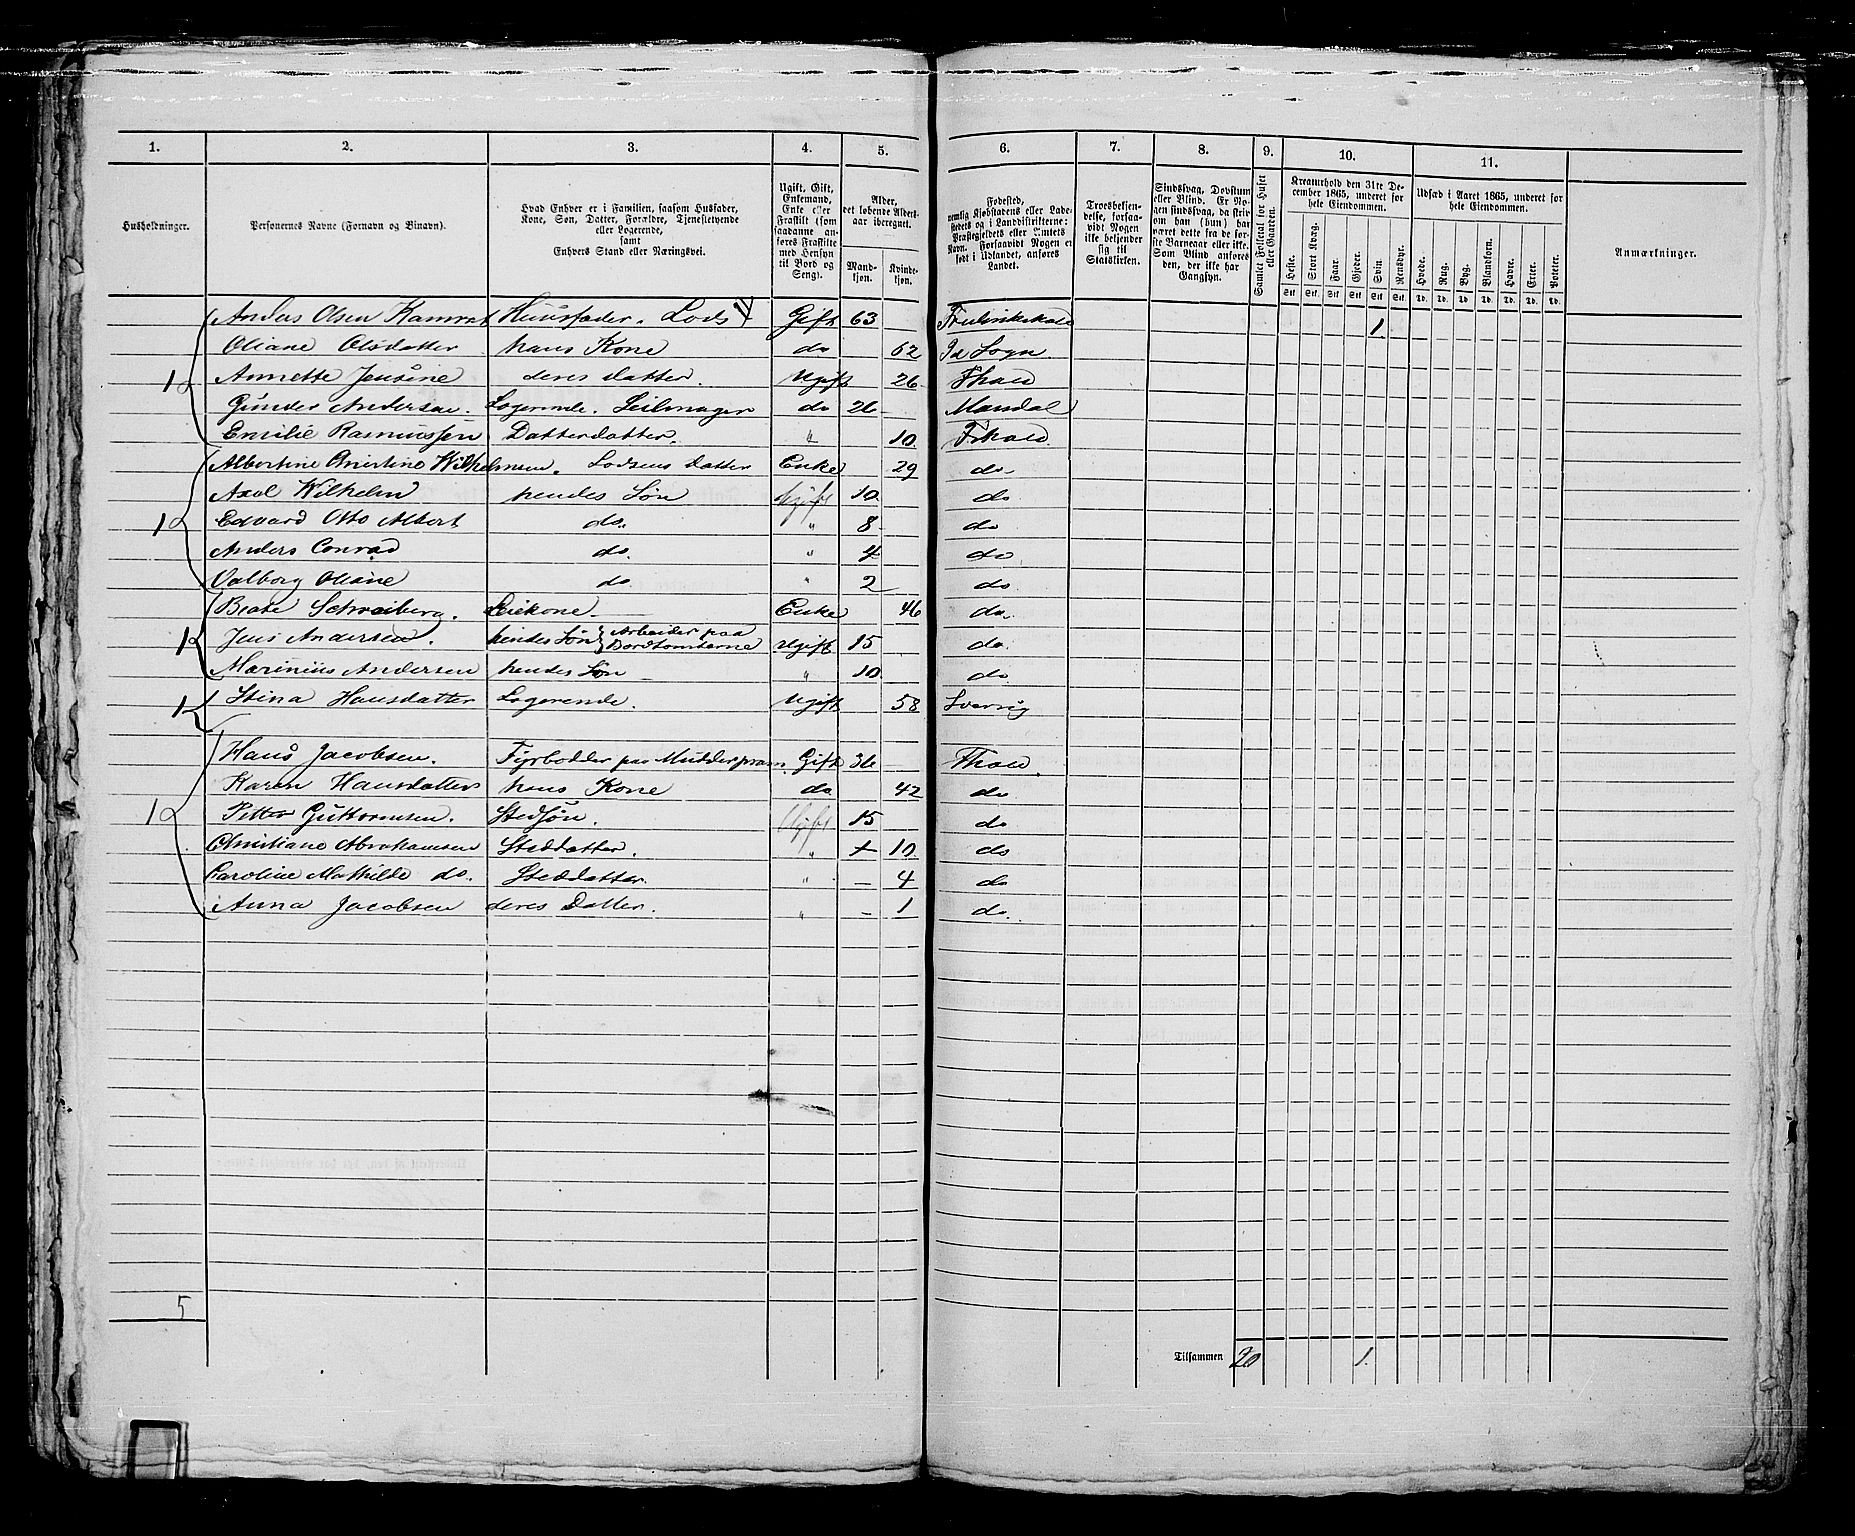 1. 2. 3. 4. 5. 6. 7. 8. 9. 10. 11.
Husholdninger.
Personernes Navne (Fornavn og Binavn).
Hvad Enhver er i Familien, saasom Husfader,
Kone, Søn, Datter, Forældre, Tjenestetyende
eller Logerende,
samt
Enhvers Stand eller Næringsvei.
Ugift, Gift,
Enkemand,
Enke eller
Fraskilt (som
saadanne an-
føres Fraskilte
med Hensyn
til Bord og
Seng).
Alder,
det løbende Alders-
aar iberegnet.
Mand-
kjøn.
Kvinde-
kjøn.
Fødested,
nemlig Kjøbstadens eller Lade-
stedets og i Landdistrikterne:
Præstegjeldets eller Amtets
Navn. Forsaavidt Nogen er
født i Udlandet, anføres
Landet.
Troesbekjen-
delse, forsaa-
vidt Nogen
ikke bekjender
sig til
Statskirken.
Sindssvag, Døvstum
eller Blind. Er No-
gen sindssvag, da skriv
om han (hun) har
været dette fra de før-
ste Barneaar eller ikke.
Som Blind anføres
den, der ikke har
Gangsyn.
Samlet Folketal for Huset
eller Gaarden.
Kreaturhold den 31te De-
cember 1865, underet for
hele Eiendommen.
Heste. Stort Kvæg. Faar. Gjeder. Svin. Rensdyr.
Stk. Stk. Stk. Stk. Stk. Stk.
Udsæd i Aaret 1865, underet for
hele Eiendommen.
Hvede. Rug. Byg. Blandkorn. Havre. Erter. Poteter.
Td. Td. Td. Td. Td. Td. Td.
Anmærkninger.
Anders Olsen Kamrat Huusfader. Lods Gift 63 Fredrikshald 1.
Oliane Olsdatter hans Kone do 62 Id Sogn
1 Annette Jensine deres Datter. Ugift 26 Fhald
Gunder Andersen. Logerende. Seilmager do 26 Mandal
Emilie Rasmussen Datterdatter. " 10 Frhald.
Albertine Christine Wilhelmsen. Lodsens Datter Enke 29 do
Axel Wilhelm hendes Søn Ugift 10 do
1 Edvard Otto Albert do. " 8 do
Anders Conrad do. " 4 do
Valborg Oliane do. " 2 do
Beate Schreiberg. Leiekone. Enke 46 do.
1 Jens Andersen. hendes Søn } Arbeider paa Bordtomterne Ugift 15 do.
Marinius Andersen hendes Søn " 10 do.
1 Stina Hansdatter Logerende. Ugift 58 Sverrig
Hans Jacobsen. Fyrbødder paa Mudderpram. Gift 36 Fhald.
Karen Hansdatter hans Kone do 42 do
1 Petter Guttormsen. Stedsøn. Ugift 15 do
Christiane Abrahamsen Steddatter. " 10 do
Caroline Mathilde do. Steddatter. " — 4 do
Anna Jacobsen deres Datter. " — 1 do.
5
Tilsammen 20 1.